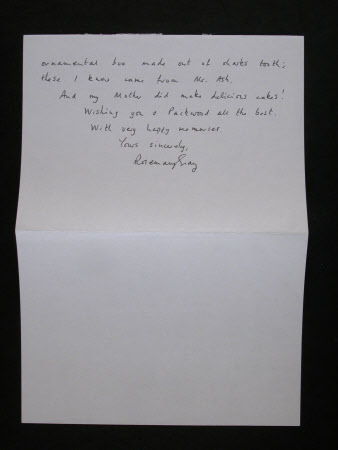 ornamental box made out of sharks tooth;
these I know came from Mr. Ash.
And my Mother did make delicious cakes!
Wishing you & Packwood all the best.
With very happy memories
Yours sincerely,
Rosemary